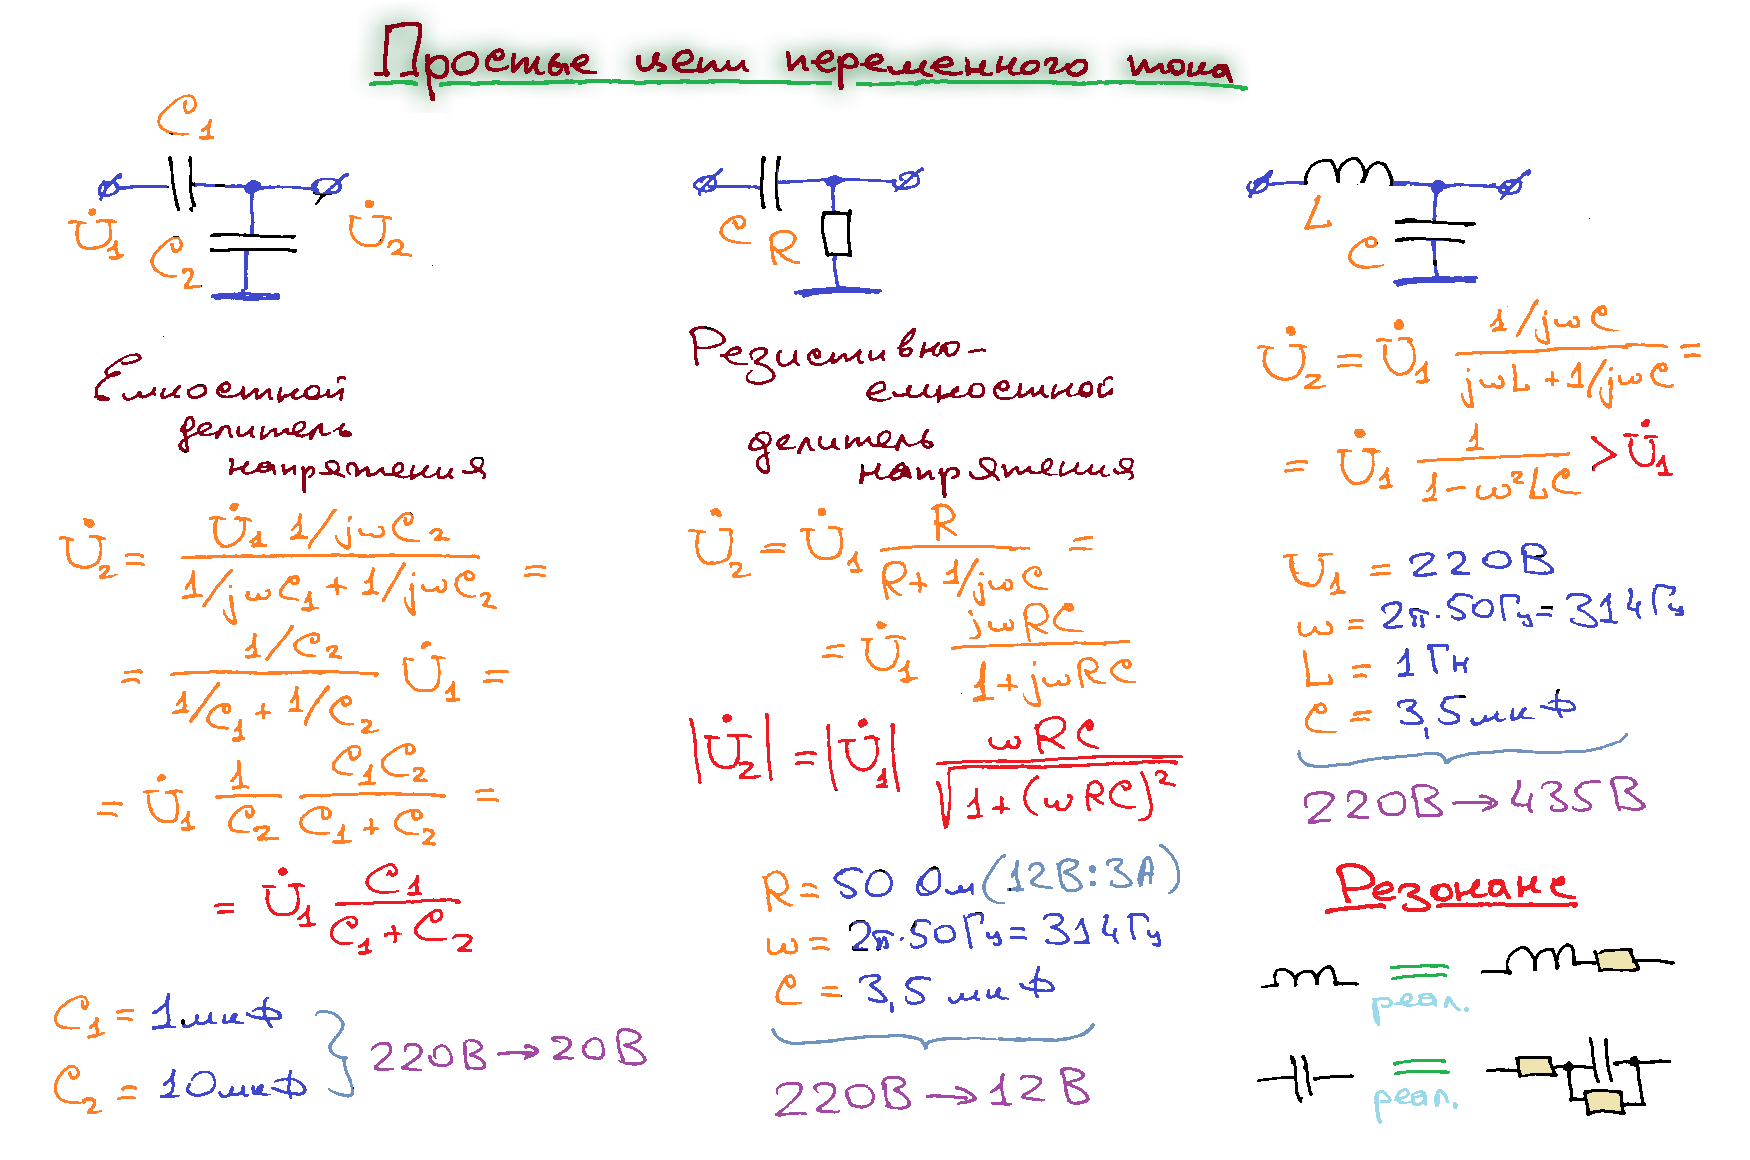 Простые цепи переменного тока
C₁
U̇₁
C₂
U̇₂
Емкостной
делитель
напряжения
U̇₂ = U̇₁ 1/jωC₂ / (1/jωC₁ + 1/jωC₂) =
= (1/C₂) / (1/C₁ + 1/C₂) U̇₁ =
= U̇₁ 1/C₂ C₁C₂ / (C₁ + C₂) =
= U̇₁ C₁ / (C₁ + C₂)
C₁ = 1мкФ
C₂ = 10мкФ
220В → 20В
C
R
Резистивно-
емкостной
делитель
напряжения
U̇₂ = U̇₁ R / (R + 1/jωC) =
= U̇₁ jωRC / (1 + jωRC)
|U̇₂| = |U̇₁| ωRC / √(1 + (ωRC)²)
R = 50 Ом (12В:3А)
ω = 2π·50Гц = 314Гц
C = 3,5 мкФ
220В → 12В
L
C
U̇₂ = U̇₁ (1/jωC) / (jωL + 1/jωC) =
= U̇₁ 1 / (1 - ω²LC) > U̇₁
U₁ = 220В
ω = 2π·50Гц = 314Гц
L = 1Гн
C = 3,5мкФ
220В → 435В
Резонанс
реал.
реал.